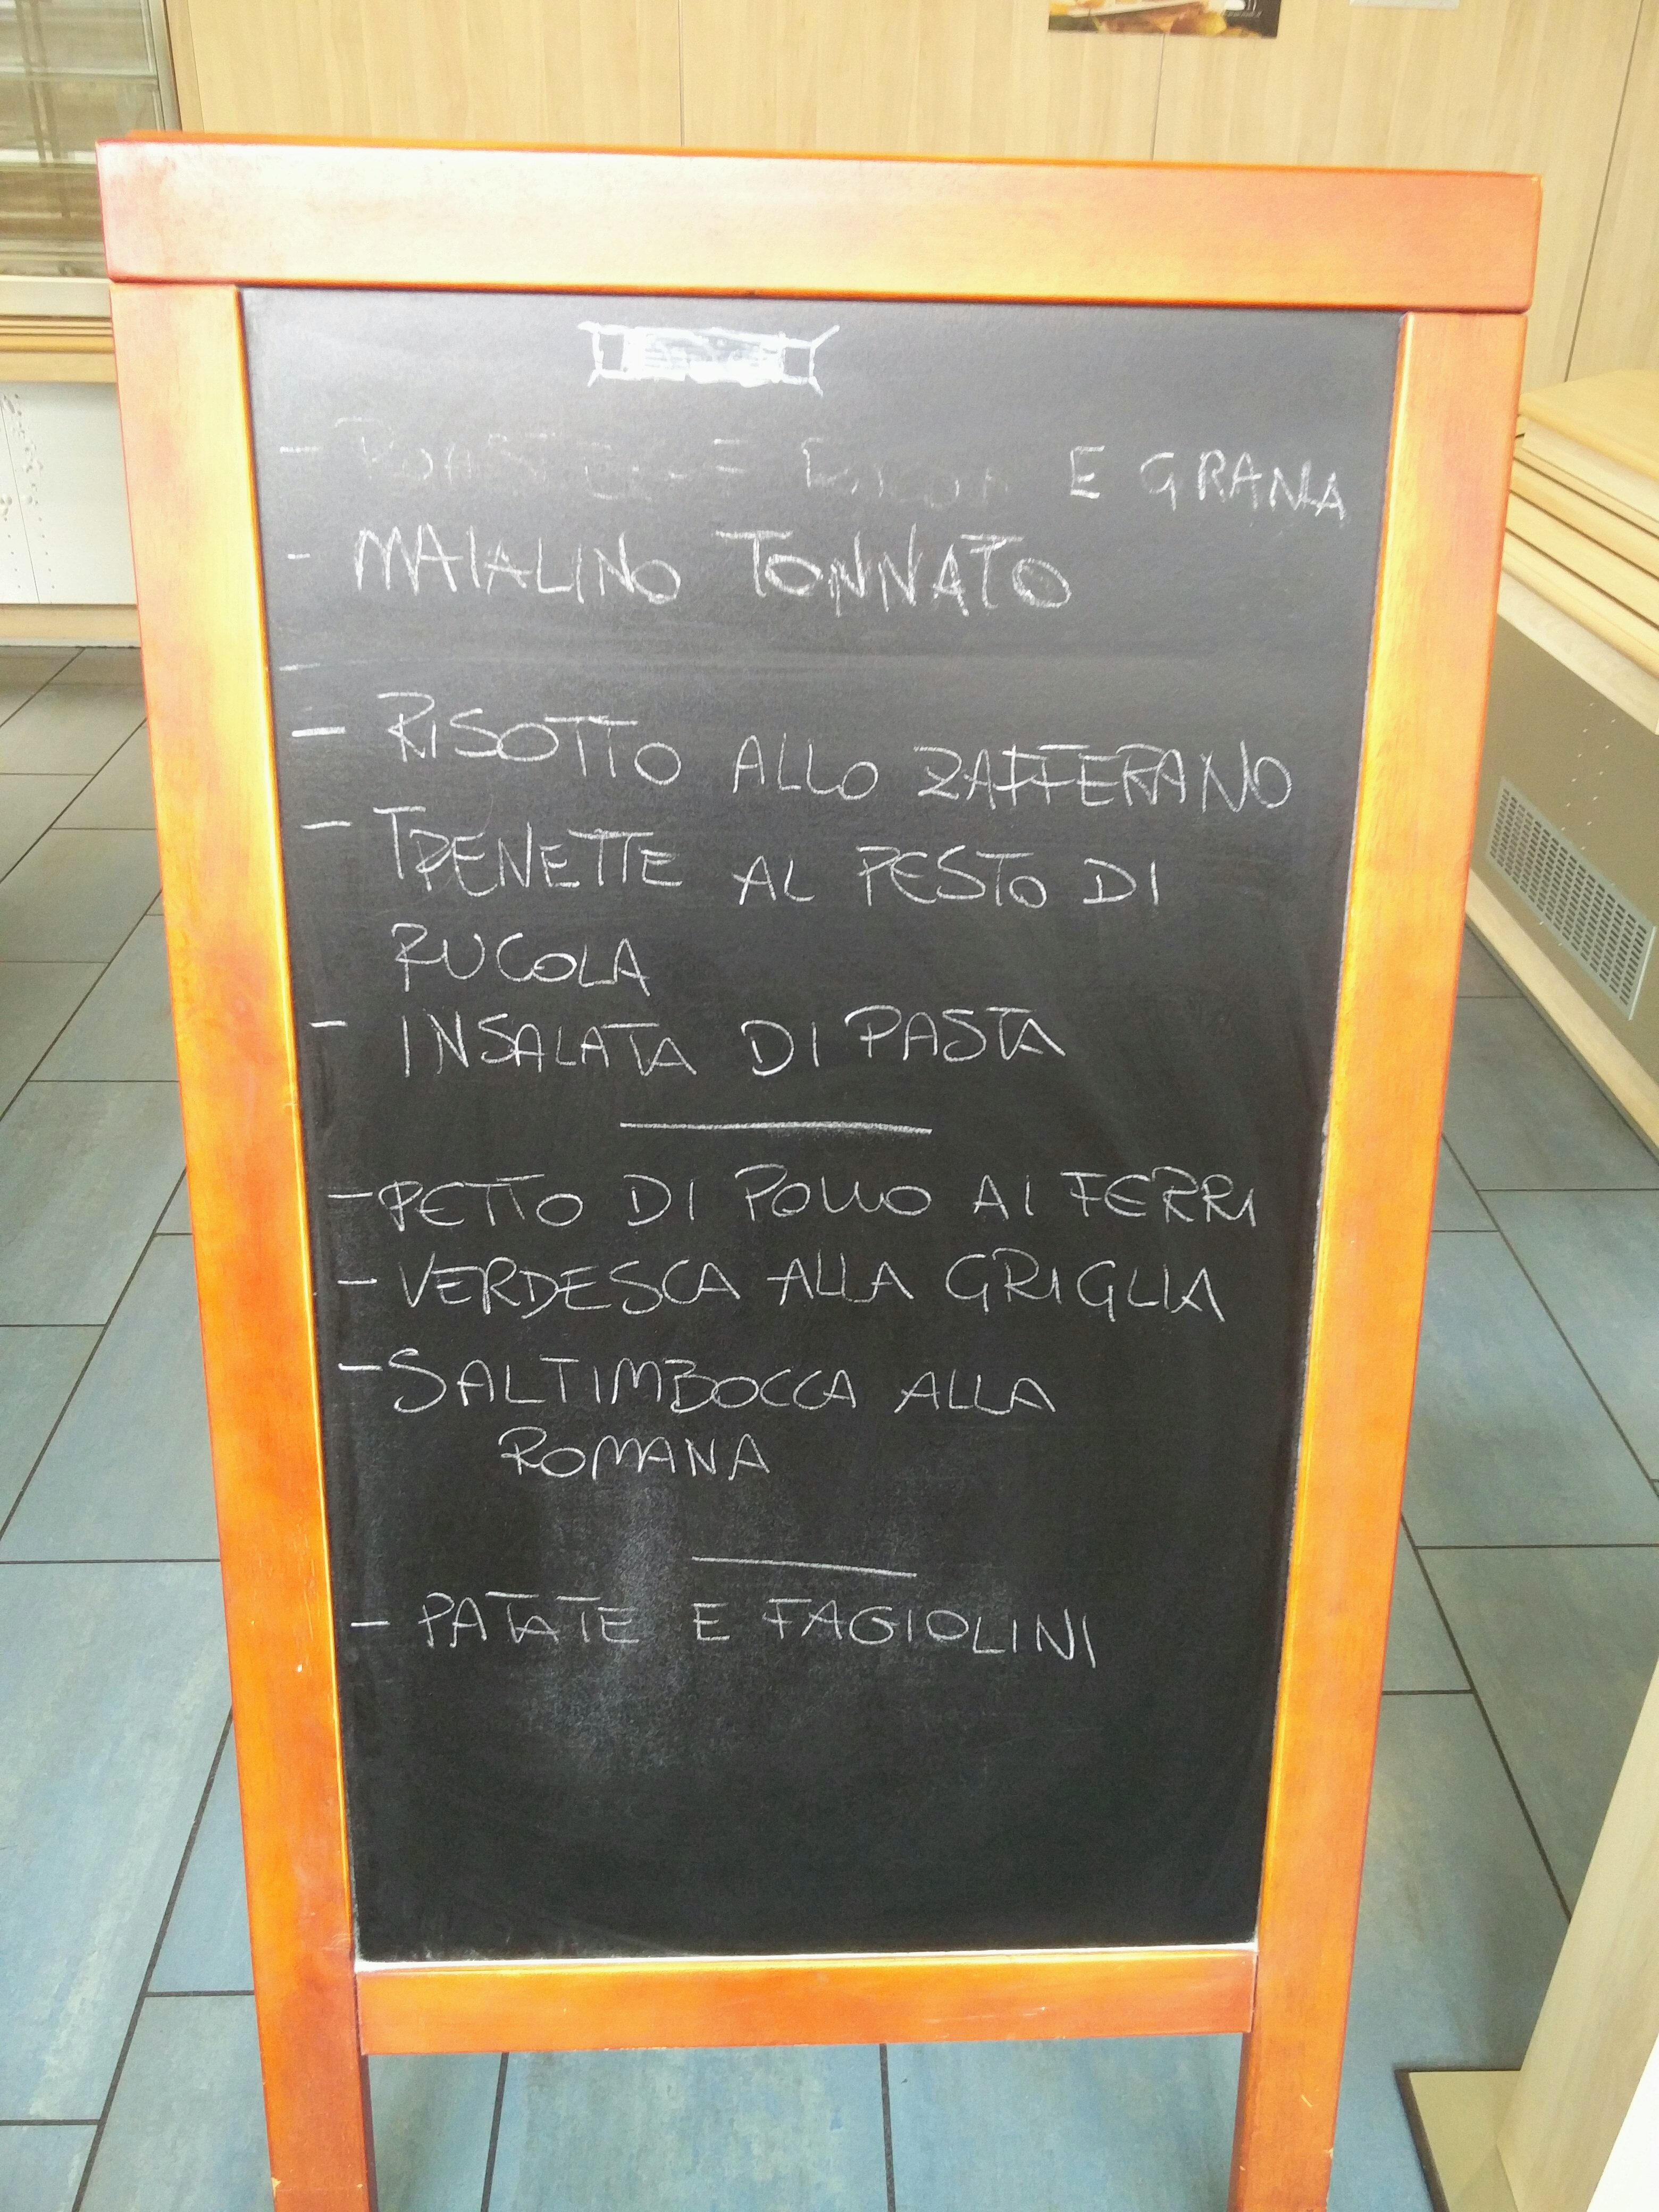 - E GRANA
- MAIALINO TONNATO
-
- RISOTTO ALLO ZAFFERANO
- TRENETTE AL PESTO DI
RUCOLA
- INSALATA DI PASTA
- PETTO DI POLLO AI FERRI
- VERDESCA ALLA GRIGLIA
- SALTIMBOCCA ALLA
ROMANA
- PATATE E FAGIOLINI